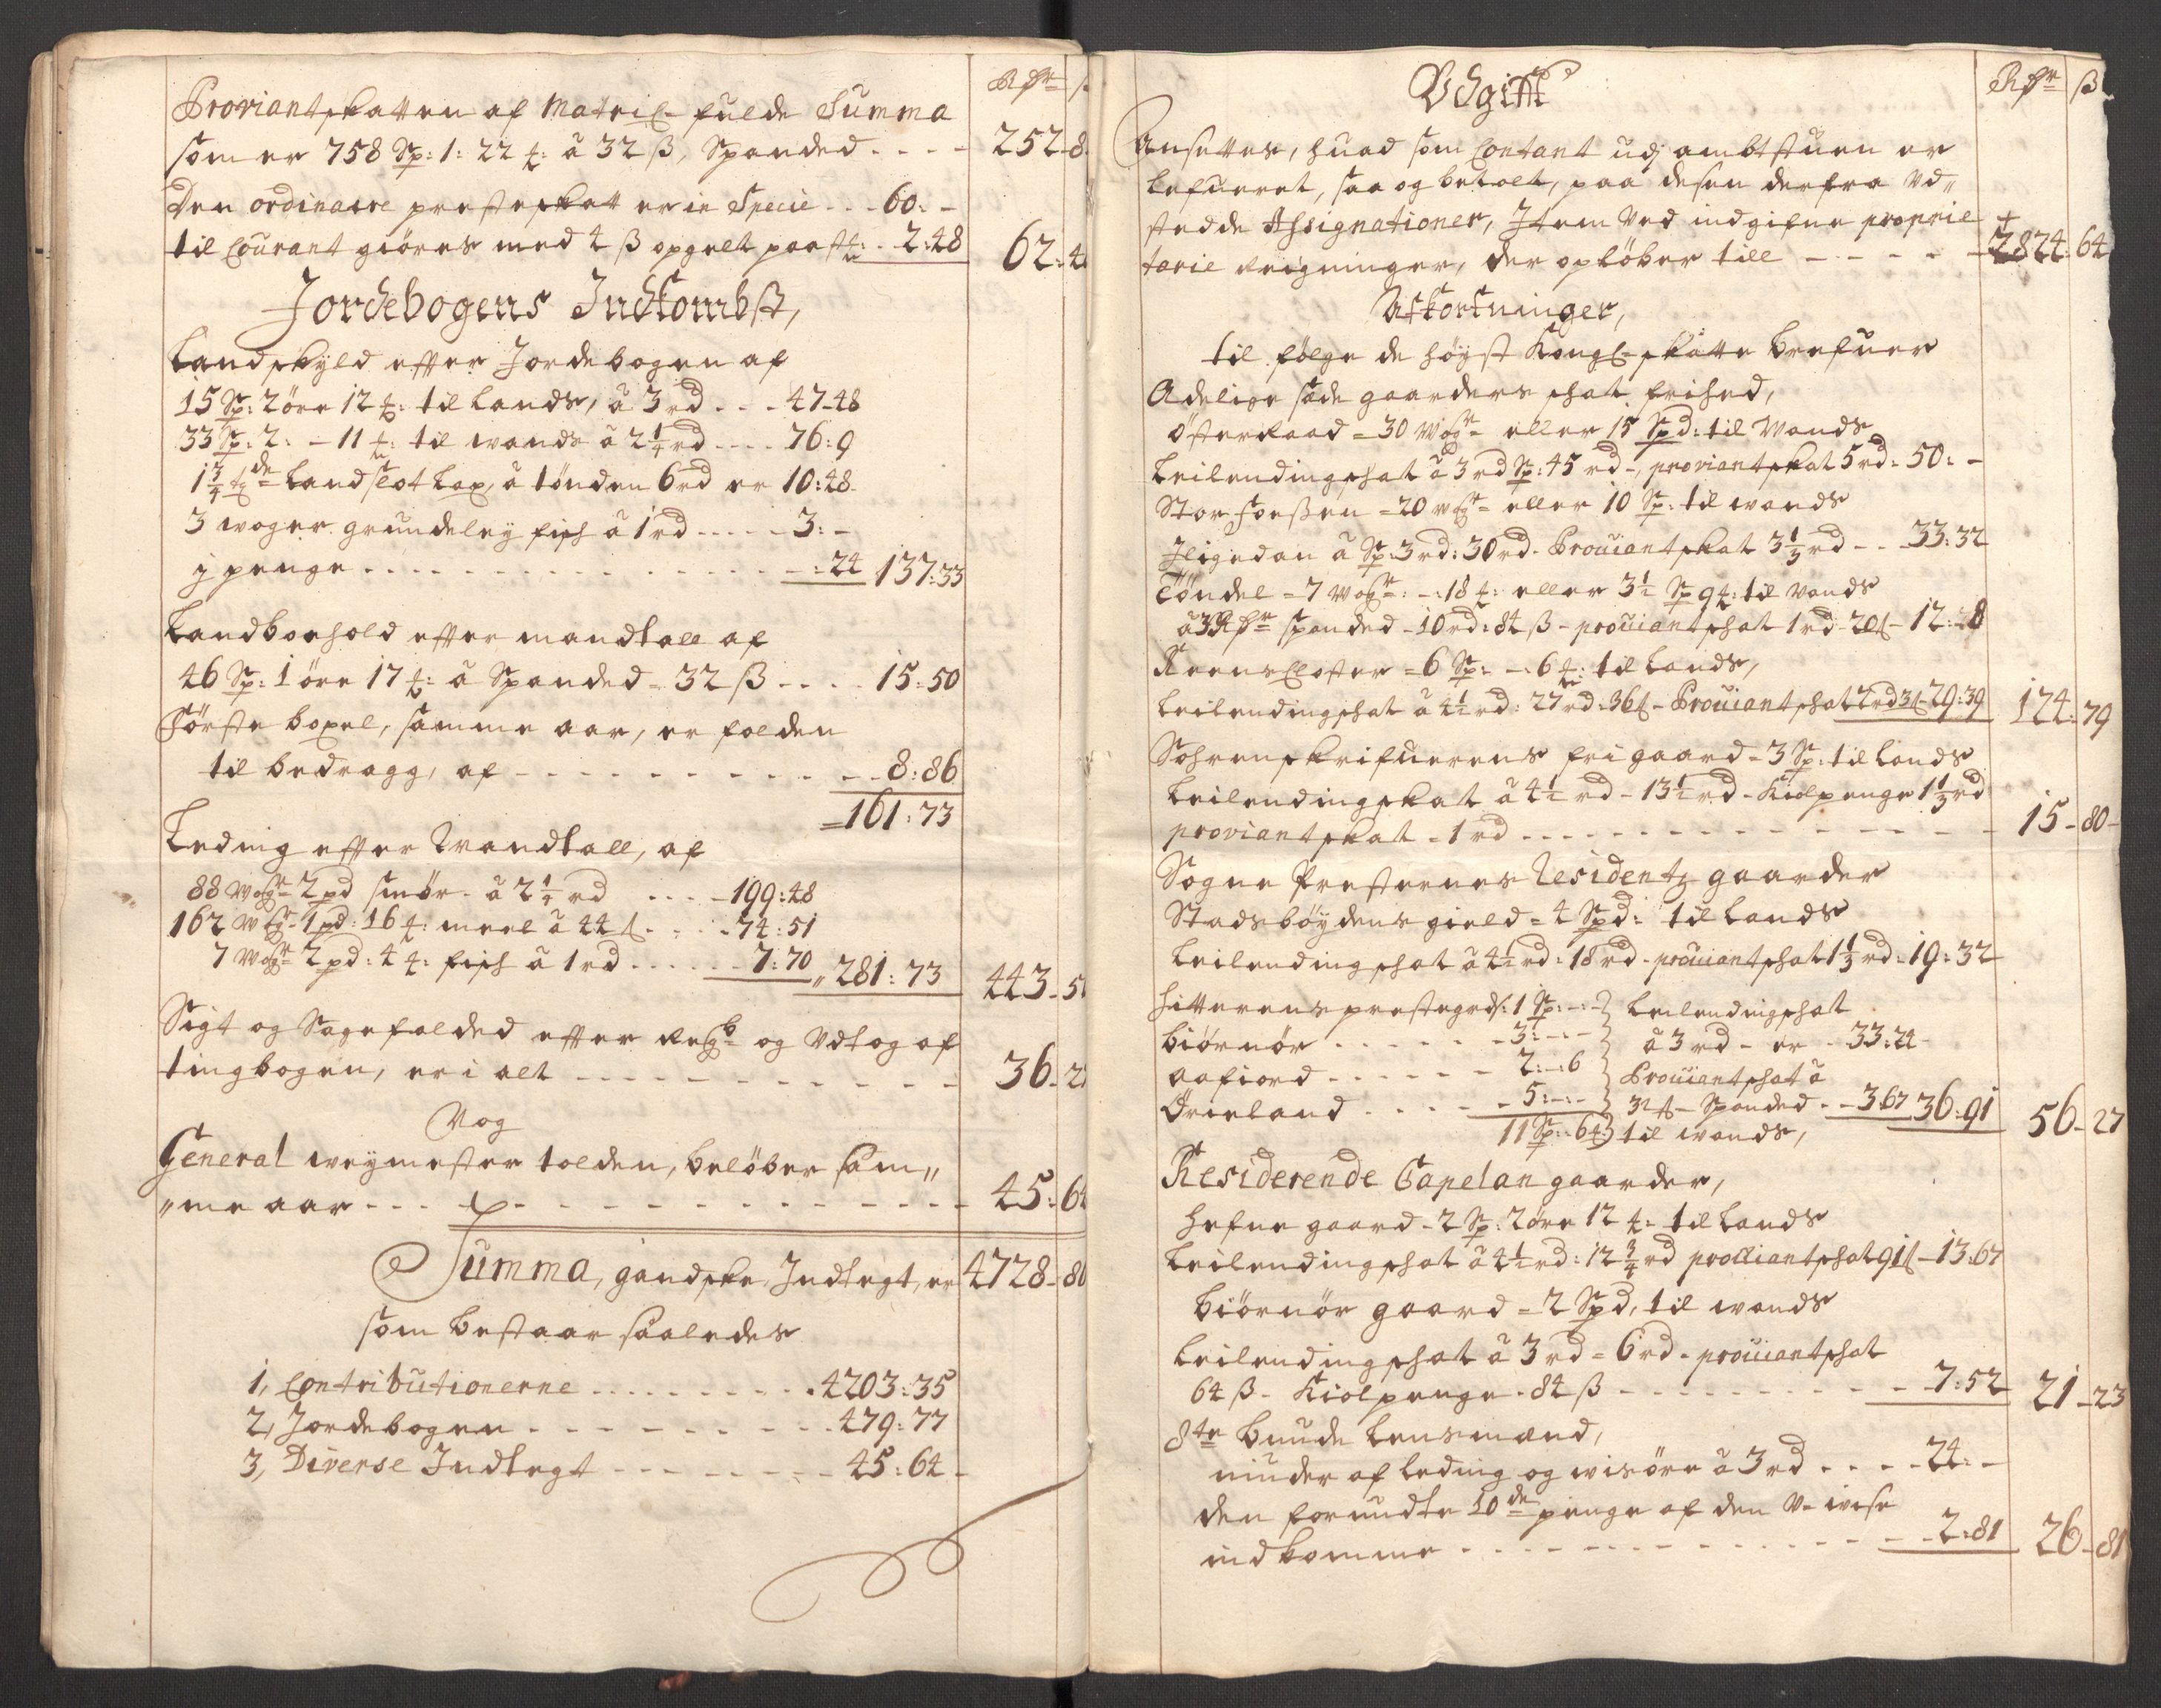 Rdr ß
Proviantskatten af Matric- fulde Summa
som er 758 Sp: 1: 22 ℔: â 32 ß, Spanded . . . - 252-8
Den ordinaire presteskatt er in Specie . . - 60: -
til Courant giöres med 4 ß opgelt paa st: . 2:48 62:4
Jordebogens Indkombst,
Landskyld effter Jordebogen af
15 Sp: 2 öre 12 ℔: til Lands, â 3 rd . . . 47-48
33 Sp: 2: - 11 ℔: til wands â 2 1/4 rd . . . . 76:9
1 3/4 de Landslot Lax, â tönden 6 rd er 10:48
3 woger grundeleÿ fisk â 1 rd . . . . . 3: -
j penge . . . . . . . . . . . . . . . . - :24 137:33
Landboehold effter mandtall af
46 Sp: 1 öre 17 ℔: â Spanded = 32 ß . . . . 15:50
Förste böxel, samme aar, er falden
til bedragg, af - - - - - - - - - - - - 8:86
=161:73
Leding effter Mandtall, af
88 Wogr 2 pd smör - â 2 1/4 rd . . . . - 199:48
162 Wogr 1 pd: 16 ℔: meel â 44 ß . . . . - 74:51
7 Wogr 2 pd: 4 ℔: fisk â 1 rd . . . . . . 7:70 " 281:73 443-5
Sigt og Sagefalded effter Regb og Vdtog af
tingbogen, er i alt - - - - - - - - - - - 36-2
Vog
General weÿmester tolden, beløber sam„
„me aar - - - - - - - - - - - - - - 45:6
Summa, gandske Indtegt, er 4728-80
som bestaar saaledes
1, Contributionerne . . . . . . . . . . 4203:35
2, Jordebogen - - - - - - - - - . . 479:77
3, Diverse Indtegt - - - - - - - - - 45:64 -
Vdgifft Rdr ß
Ansettes, huad som Contant udj ambtstuen er
lefueret, saa og betalt, paa desen derfra Vd„
stedde Assignationer, Item Ved indgifne proprie
tarie Reigninger, der opløber till - - - - - 2824:64
Afkortninger,
til følge de höÿst Kongl- skatte brefuer
Adelige sædegaarders skat frihed,
Österraad = 30 Wogr eller 15 Spd: til Wands
Leilendingskat â 3 rd Sp: 45 rd -, proviantskat 5 rd = 50: -
Stor foesen = 20 wogr = eller 10 Sp: til wands
Jligedan â Sp: 3 rd: 30 rd. Prouiantskat 3 1/3 rd - - 33:32
Töndel = 7 Wogr: -: 18 ℔: eller 3 1/2 Sp 9 ℔: til Wands
â 3 Rdr spanded - 10 rd: 84 ß - prouiantskat 1 rd 20 ß - 12: 8
Reens Closter = 6 Sp: -: 6 ℔: til Lands,
Leilendingskat â 4 1/2 rd: 27 rd: 36 ß - Prouiantskat 2 rd 3 ß - 29:39 124:79
Sohrenskrifuerens frigaard = 3 Sp: til Lands
Leilendingskat â 4 1/2 rd - 13 1/2 rd - Kiolpenge 1 1/3 rd
proviantskat = 1 rd - - - - - - - - - - - - - - - 15-80-
Sogne Presternes Residentz gaarder
Stadsböÿdens gield = 4 Spd: til Lands
Leilendingskat â 4 1/2 rd: 18 rd - prouiantskat 1 1/3 rd = 19:32
Hitterens prestegrd: 1 Sp: -: - } Leilendingskat
Biörnör . . . . . . - 3: -: - } â 3 rd - er . 33:24 -
Aafiord . . . . . . . - 2: -: 6 } Prouiantskat â
Örieland . . . . . - 5: -: - } 32 ß - Spanded - - 3:67 36:91 56-27
11 Sp: 6 ℔: } til wands,
Residerende Capelan gaarder,
Hefne gaard - 2 Sp: 2 öre 12 ℔: til Lands
Leilendingskat â 4 1/2 rd: 12 3/4 rd prouiantskat 91 ß - 13:67
Biörnör gaard = 2 Spd, til wands
Leilendingskat â 3 rd = 6 rd - prouiantskat
64 ß - Kiolpenge - 84 ß - - - - - - - - - - 7:52 21-23
8te Bunde Lensmænd,
niuder af leding og wisöre â 3 rd . . . . 24: -
den forundte 10de penge af den V- wise
indkomme - - - - - - - - - - - - - - - 2:81 26-81